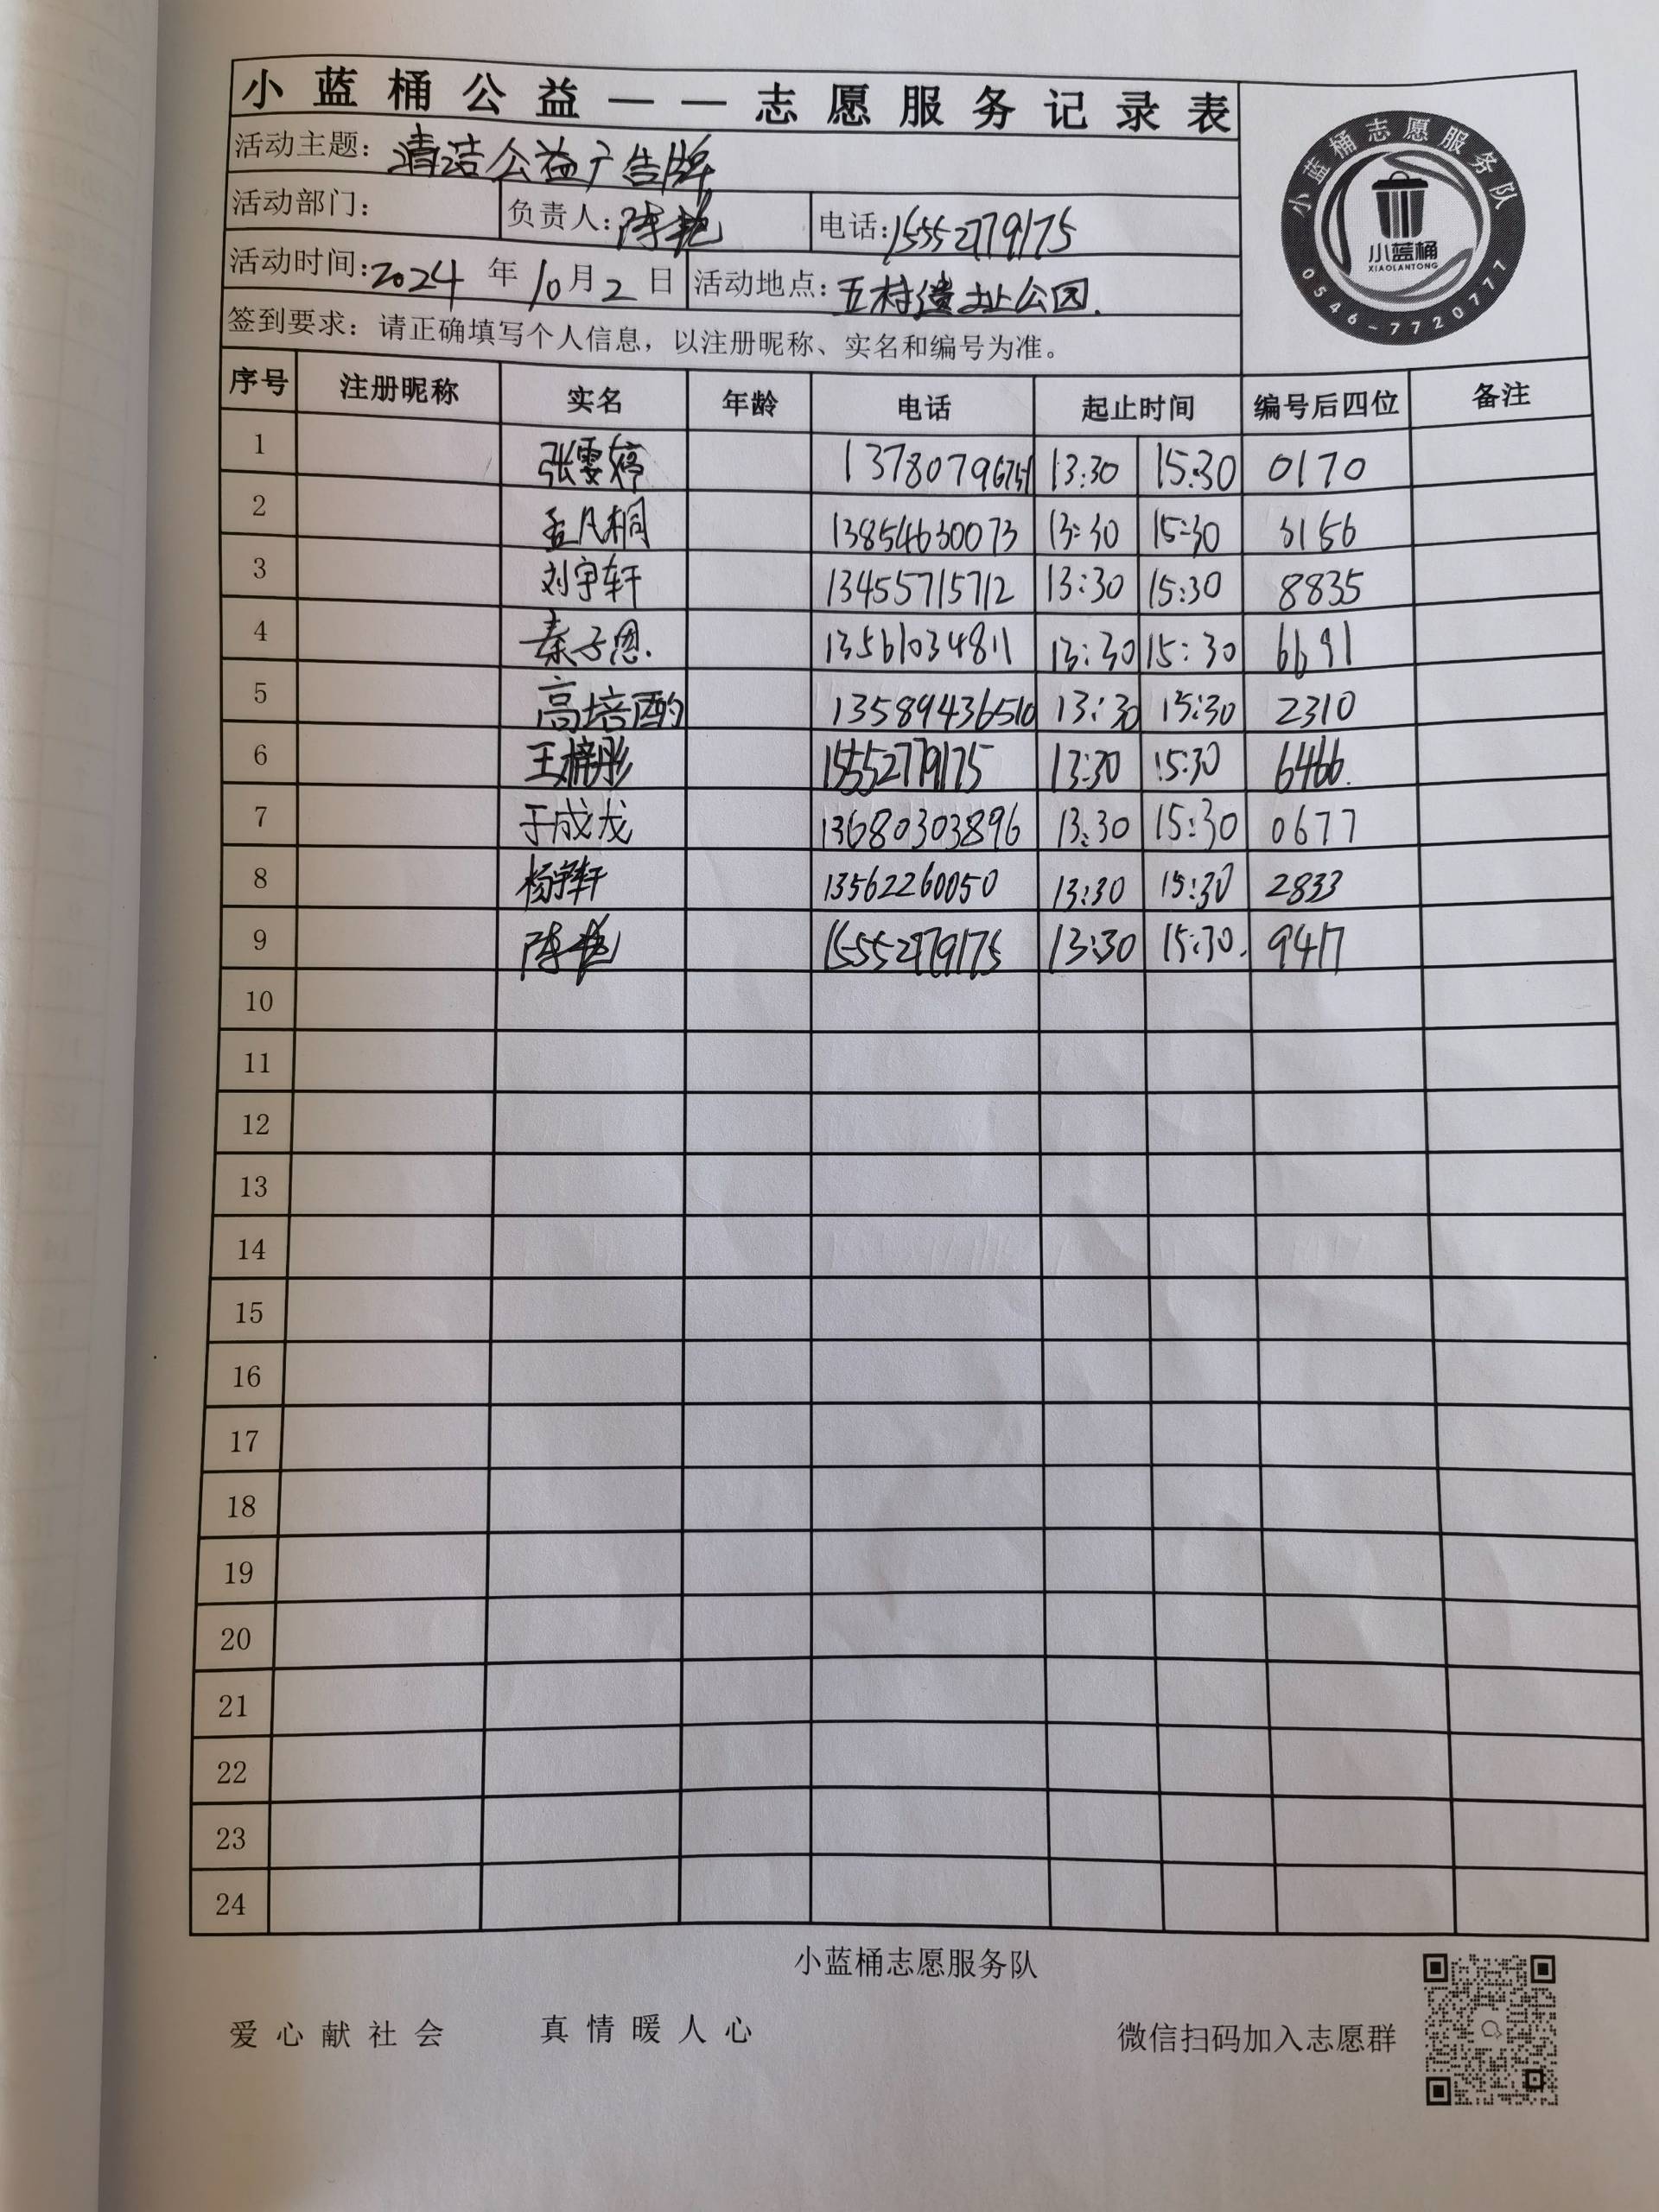 小蓝桶公益——志愿服务记录表
活动主题：清洁公益广告牌
活动部门： 负责人：陈艳 电话：15552779175
活动时间：2024年10月2日 活动地点：五村遗址公园.
签到要求：请正确填写个人信息，以注册昵称、实名和编号为准。
小蓝桶志愿服务队
小蓝桶
XIAOLANTONG
0546-7720777
序号 注册昵称 实名 年龄 电话 起止时间 编号后四位 备注
1 张雯婷 13:30 15:30 0170
2 孟凡桐 13854630073 13:30 15:30 3156
3 刘宇轩 13455715712 13:30 15:30 8835
4 秦子恩. 13561034811 13:30 15:30 6691
5 高培酌 13589436510 13:30 15:30 2310
6 王梓彤 15552779175 13:30 15:30 6466.
7 于成龙 13680303896 13:30 15:30 0677
8 杨宇轩 13562260050 13:30 15:30 2833
9 陈艳 15552779175 13:30 15:30. 9417
10
11
12
13
14
15
16
17
18
19
20
21
22
23
24
小蓝桶志愿服务队
爱心献社会 真情暖人心 微信扫码加入志愿群